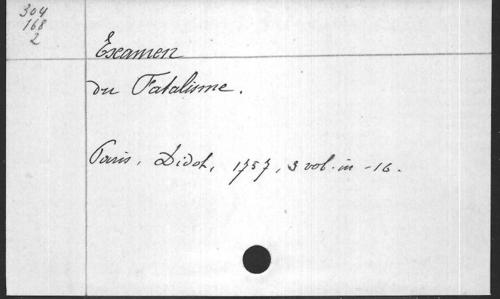 304
168
2
Examen
du Fatalisme.
Paris, Didot, 1757, 3 vol. in-16.